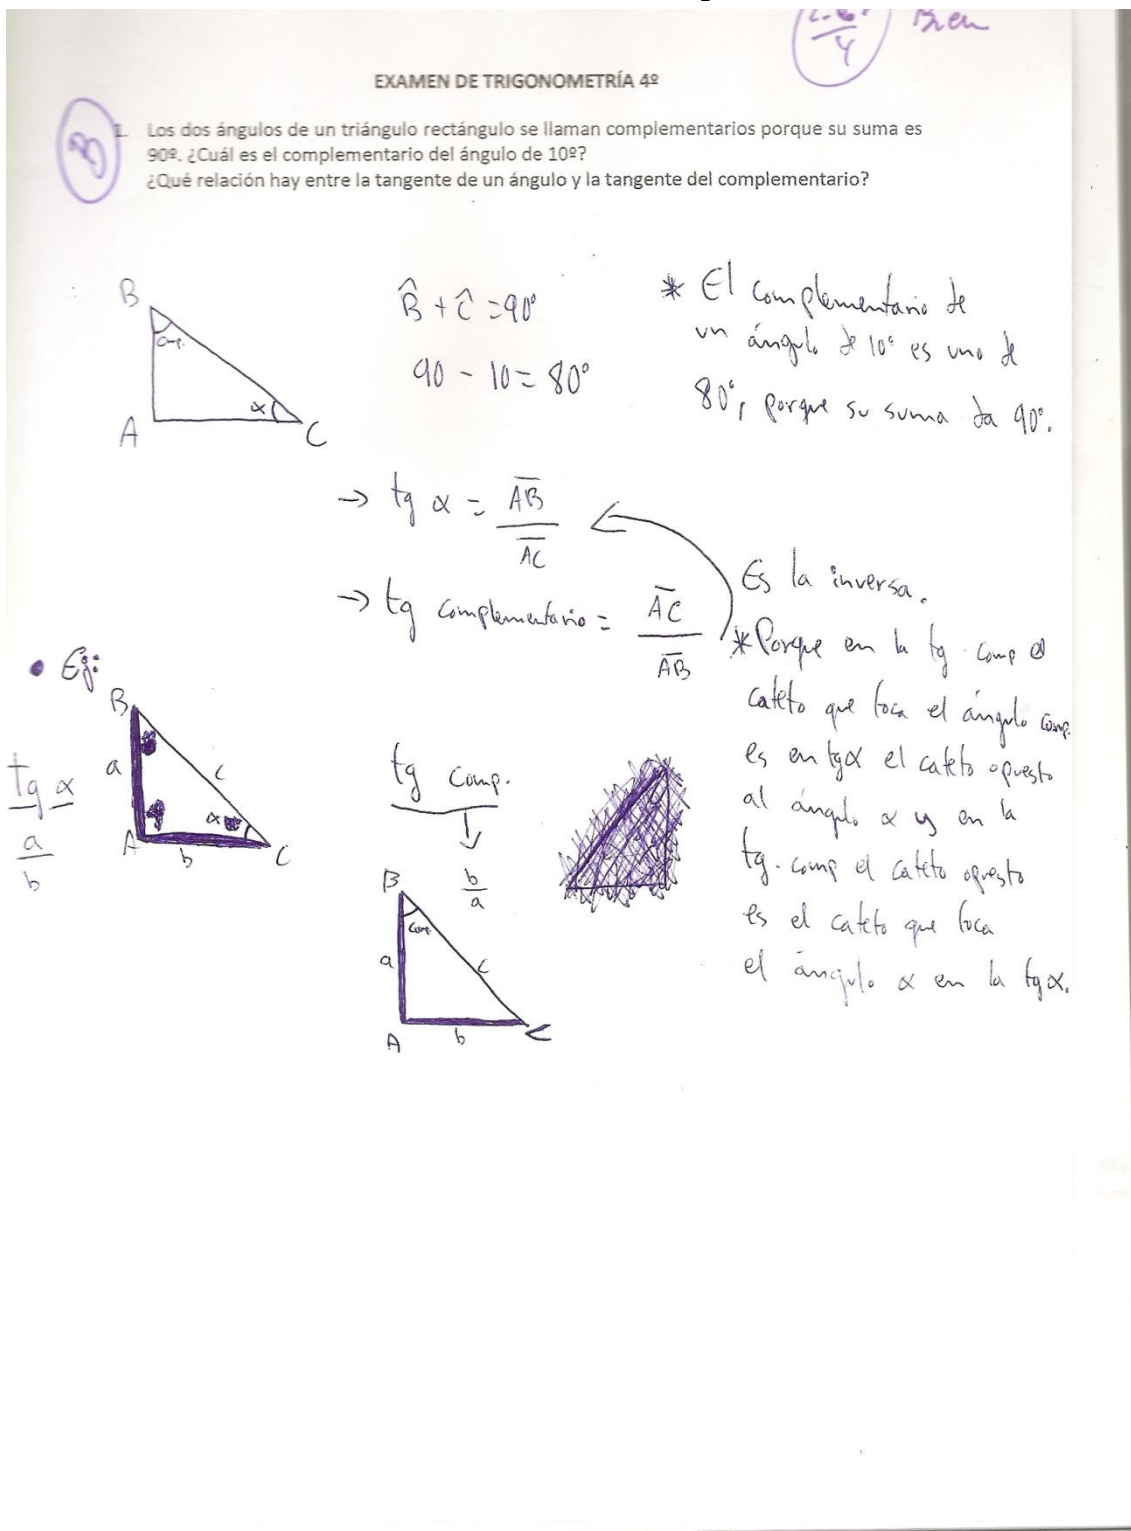 Bien
4
EXAMEN DE TRIGONOMETRÍA 4º
1. Los dos ángulos de un triángulo rectángulo se llaman complementarios porque su suma es
90º. ¿Cuál es el complementario del ángulo de 10º?
¿Qué relación hay entre la tangente de un ángulo y la tangente del complementario?
B
comp.
α
A
C
B̂ + Ĉ = 90º
90 - 10 = 80º
* El complementario de
un ángulo de 10º es uno de
80º, porque su suma da 90º.
→ tg α = AB
AC
→ tg complementario = AC
AB
Es la inversa.
* Porque en la tg comp el
cateto que toca el ángulo comp.
es en tgα el cateto opuesto
al ángulo α y en la
tg. comp el cateto opuesto
es el cateto que toca
el ángulo α en la tgα.
• Ej:
tg α
a
b
B
a
c
α
A
b
C
tg comp.
b
a
B
comp.
a
c
A
b
C